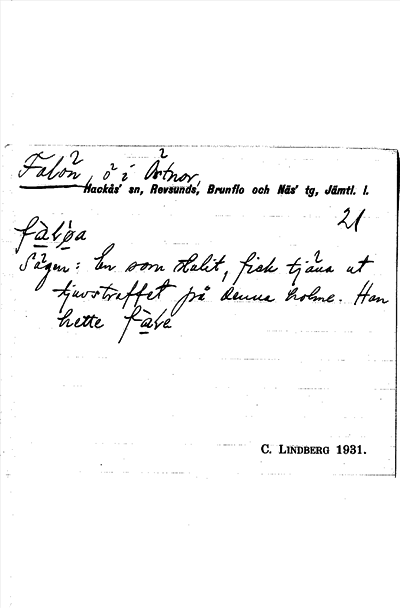 Falön, ö i Östnor,
Hackås' sn, Revsunds, Brunflo och Näs' tg, Jämtl. l.
21
fàløa
Sägen: En som stulit, fick tjäna ut
tjuvstraffet på denna holme. Han
hette fàle
C. LINDBERG 1931.